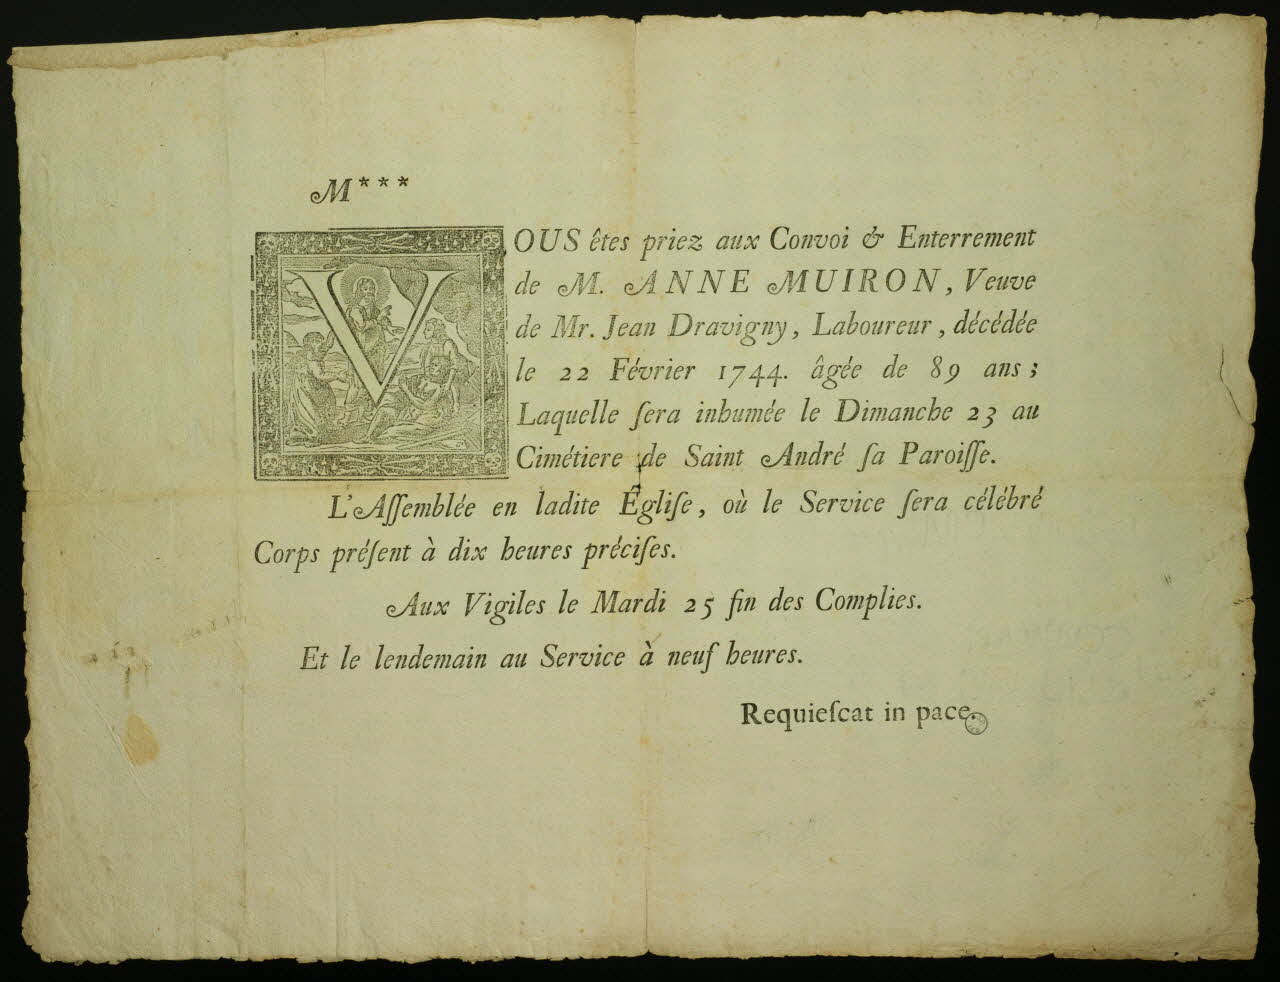 M***
VOUS êtes priez aux Convoi & Enterrement
de M. ANNE MUIRON, Veuve
de Mr. Jean Dravigny, Laboureur, décédée
le 22 Février 1744. âgée de 89 ans;
Laquelle ſera inhumée le Dimanche 23 au
Cimétiere de Saint André ſa Paroiſſe.
L'Aſſemblée en ladite Égliſe, où le Service ſera célébré
Corps préſent à dix heures préciſes.
Aux Vigiles le Mardi 25 fin des Complies.
Et le lendemain au Service à neuf heures.
Requieſcat in pace.